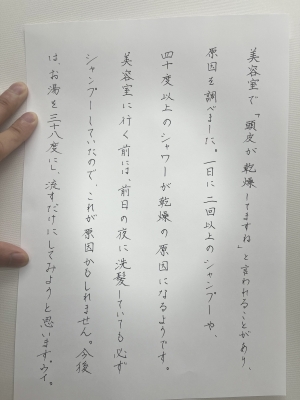 美容室で「頭皮が乾燥してますね」と言われることがあり、
原因を調べました。一日に二回以上のシャンプーや、
四十度以上のシャワーが乾燥の原因になるようです。
美容室に行く前には、前日の夜に洗髪していても必ず
シャンプーしていたので、これが原因かもしれません。今後
は、お湯を三十八度にし、流すだけにしてみようと思います。